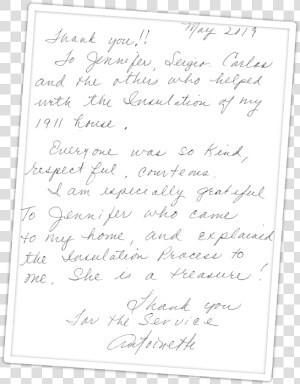 May 2019
Thank you!!
To Jennifer, Sergio Carlos
and the others who helped
with the Insulation of my
1911 house.
Everyone was so kind,
respectful, courteous.
I am especially grateful
To Jennifer who came
to my home, and explained
the Insulation Process to
me. She is a treasure!
Thank you
For the Service
Antoinette